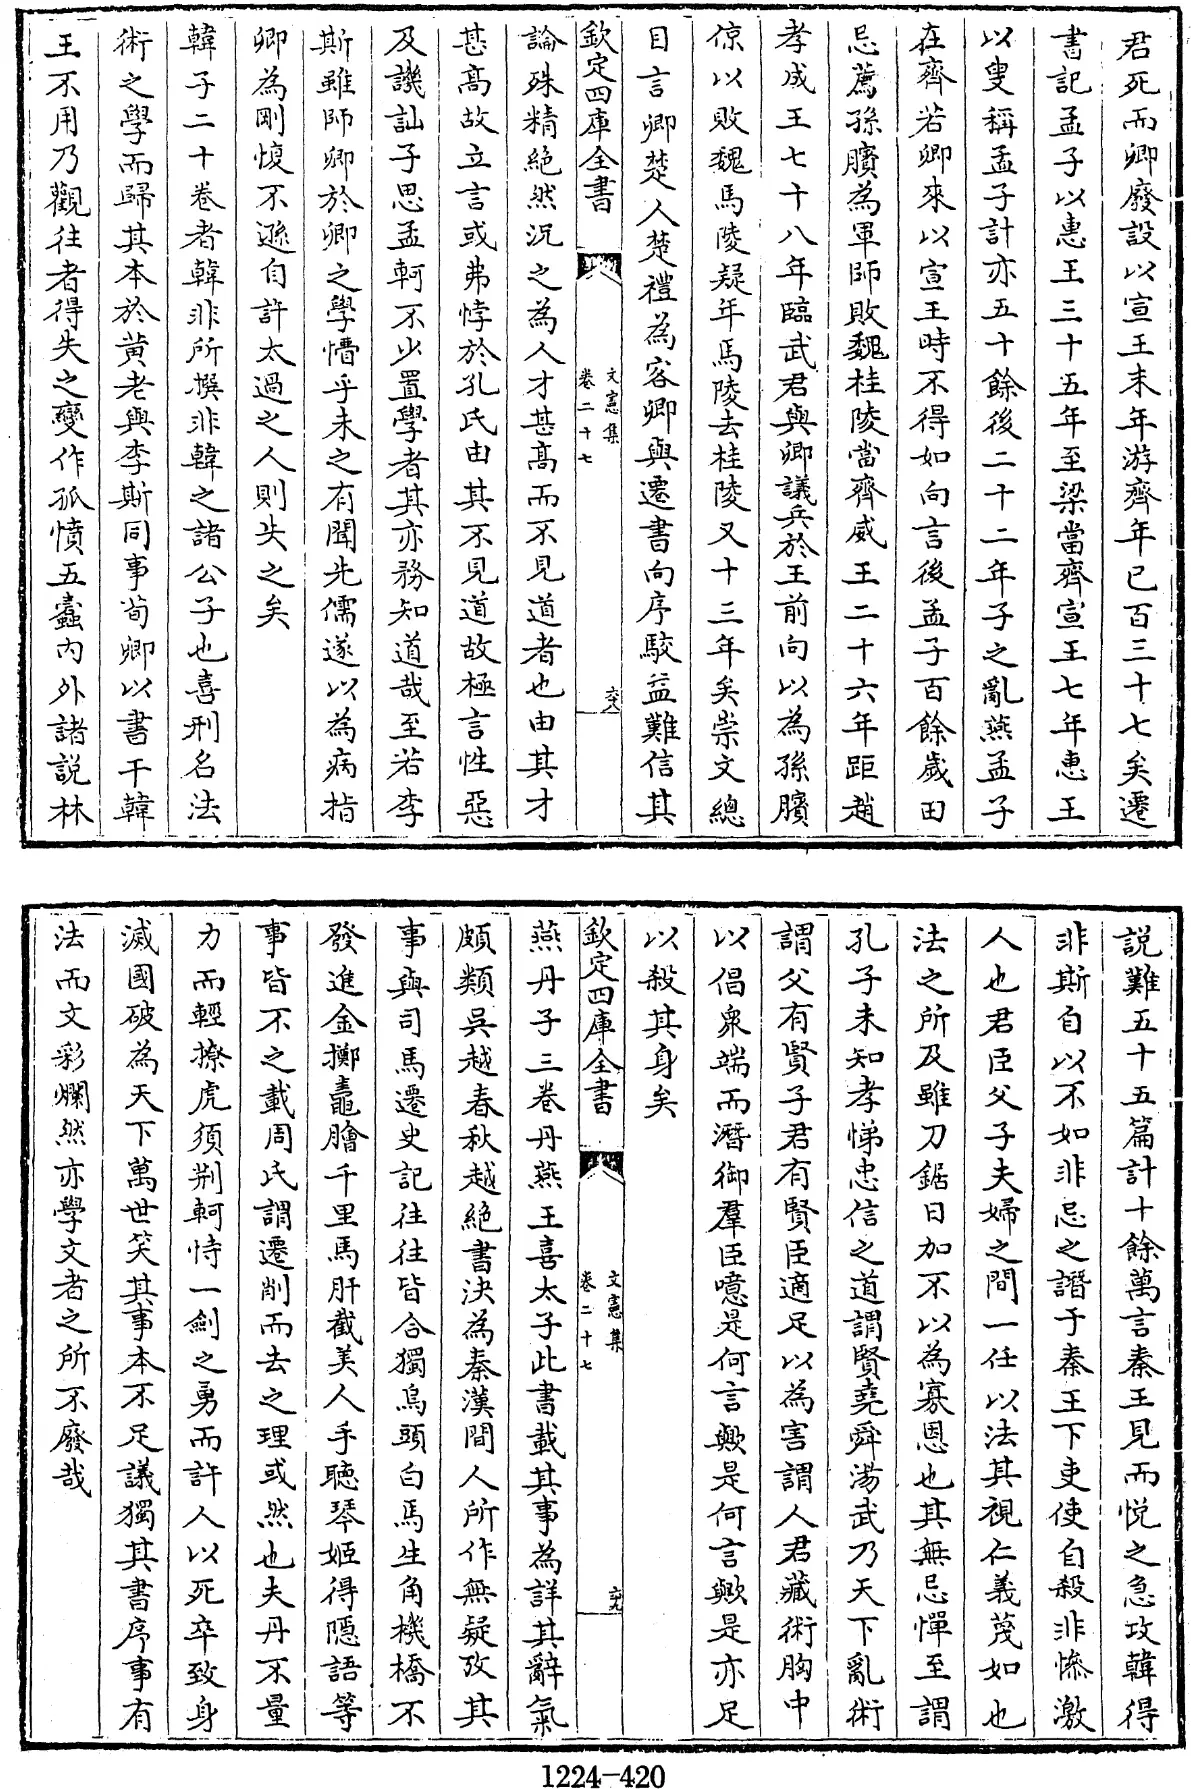 君死而卿廢設以宣王末年游齊年已百三十七矣遷
書記孟子以惠王三十五年至梁當齊宣王七年惠王
以叟稱孟子計亦五十餘後二十二年子之亂燕孟子
在齊若卿來以宣王時不得如向言後孟子百餘歲田
忌薦孫臏為軍師敗魏桂陵當齊威王二十六年距趙
孝成王七十八年臨武君與卿議兵於王前向以為孫臏
倞以敗魏馬陵疑年馬陵去桂陵又十三年矣崇文總
目言卿楚人楚禮為客卿與遷書向序駮益難信其
欽定四庫全書
文憲集
卷二十七
六八
論殊精絕然況之為人才甚高而不見道者也由其才
甚高故立言或弗悖於孔氏由其不見道故極言性惡
及譏訕子思孟軻不少置學者其亦務知道哉至若李
斯雖師卿於卿之學懵乎未之有聞先儒遂以為病指
卿為剛愎不遜自許太過之人則失之矣
韓子二十卷者韓非所撰非韓之諸公子也喜刑名法
術之學而歸其本於黄老與李斯同事荀卿以書干韓
王不用乃觀往者得失之變作孤憤五蠹内外諸説林
説難五十五篇計十餘萬言秦王見而悦之急攻韓得
非斯自以不如非忌之譖于秦王下吏使自殺非慘激
人也君臣父子夫婦之間一任以法其視仁義蔑如也
法之所及雖刀鋸日加不以為寡恩也其無忌憚至謂
孔子未知孝悌忠信之道謂賢堯舜湯武乃天下亂術
謂父有賢子君有賢臣適足以為害謂人君藏術胸中
以倡衆端而潛御羣臣噫是何言歟是何言歟是亦足
以殺其身矣
欽定四庫全書
文憲集
卷二十七
六九
燕丹子三卷丹燕王喜太子此書載其事為詳其辭氣
頗類吳越春秋越絕書決為秦漢間人所作無疑攷其
事與司馬遷史記往往皆合獨烏頭白馬生角機橋不
發進金擲鼃膾千里馬肝截美人手聽琴姬得隱語等
事皆不之載周氏謂遷削而去之理或然也夫丹不量
力而輕撩虎須荆軻恃一劍之勇而許人以死卒致身
滅國破為天下萬世笑其事本不足議獨其書序事有
法而文彩爛然亦學文者之所不廢哉
1224-420